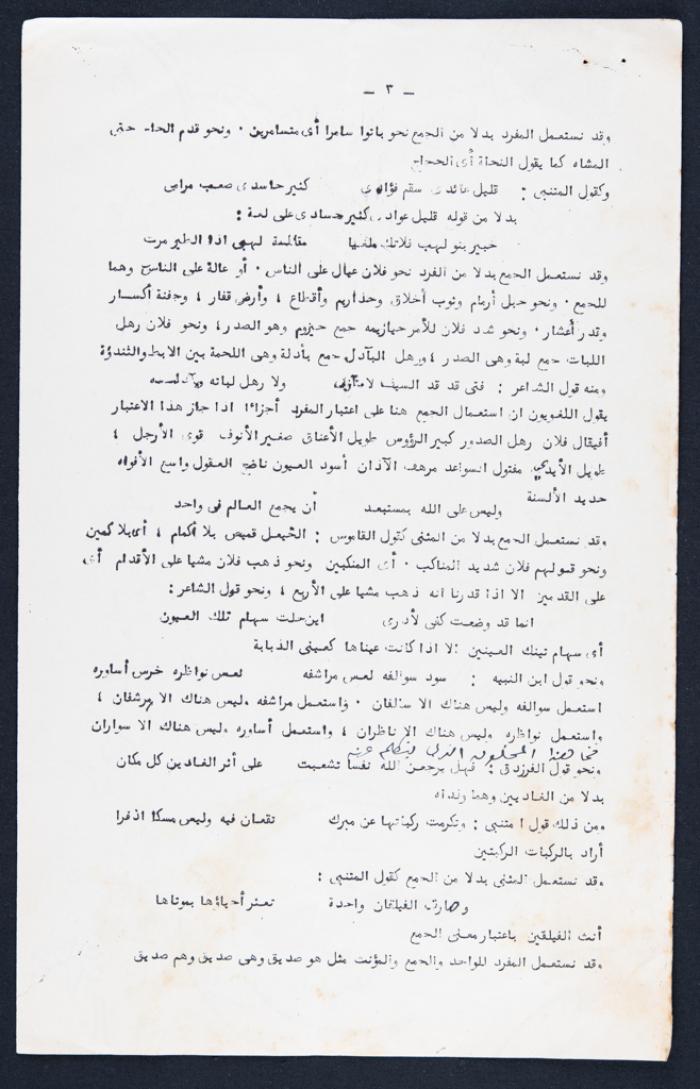 — ٣ —
وقد نستعمل المفرد بدلا من الجمع نحو باتوا سامرا أى متسامرين ٠ ونحو قدم الحاج حتى
المشاه كما يقول النحاة أى الحجاج
وكقول المتنبى : قليل عائدى سقم فؤادى كثير حاسدى صعب مرامى
بدلا من قوله قليل عوادى كثير حسادى على لغة :
خبير بنو لهب فلا تك ملغيا مقالة لهبى اذا الطير مرت
وقد نستعمل الجمع بدلا من الفرد نحو فلان عيال على الناس ٠ أو عالة على الناس وهما
للجمع ٠ ونحو حبل أرمام وثوب أخلاق وحذاريم وأقطاع ، وأرض قفار ، وجفنة أكسار
وقدر أعشار ٠ ونحو شد فلان للأمر حيازيمه جمع حيزوم وهو الصدر ، ونحو فلان رهل
اللبات جمع لبة وهى الصدر ، ورهل البآدل جمع بأدلة وهى اللحمة بين الابط والثندؤة
ومنه قول الشاعر : فتى قد قد السيف لا متآزف ولا رهل لباته وبآدله
يقول اللغويون ان استعمال الجمع هنا على اعتبار المفرد أجزائا اذا جاز هذا الاعتبار
أفيقال فلان رهل الصدور كبير الرؤوس طويل الأعناق صغير الأنوف قوى الأرجل ،
طويل الأيدى مفتول السواعد مرهف الآذان أسود العيون ناضج العقول واسع الأفواه
حديد الألسنة
وليس على الله بمستبعد أن يجمع العالم فى واحد
وقد نستعمل الجمع بدلا من المثنى كقول القاموس : الخيعل قميص بلا أكمام ، أى بلا كمين
ونحو قولهم فلان شديد المناكب ٠ أى المنكبين ونحو ذهب فلان مشيا على الأقدام أى
على القدمين الا اذا قدرنا انه ذهب مشيا على الأربع ، ونحو قول الشاعر :
انما قد وضعت كفى لأدرى اين حلت سهام تلك العيون
أى سهام تينك العينين الا اذا كانت عيناها كعينى الذبابة
ونحو قول ابن النبيه : سود سوالفه لعس مراشفه نعس نواظره خرس أساوره
استعمل سوالفه وليس هناك الا سالفان ٠ واستعمل مراشفه وليس هناك الا مرشفان ،
واستعمل نواظره وليس هناك الا ناظران ، واستعمل أساوره وليس هناك الا سواران
فما هذا المخلوق الذى يتكلم عنه
ونحو قول الفرزدق : فهل يرجعن الله نفسا تشعبت على أثر الغادين كل مكان
بدلا من الغاديين وهما ولداه
ومن ذلك قول المتنبى : وتكرمت ركباتها عن مبرك تقعان فيه وليس مسكا اذفرا
أراد بالركبات الركبتين
وقد نستعمل المثنى بدلا من الجمع كقول المتنبى :
وصارت الفيلقان واحدة تعثر أحياؤها بموتاها
أنث الفيلقين باعتبار معنى الجمع
وقد نستعمل المفرد للواحد والجمع والمؤنث مثل هو صديق وهى صديق وهم صديق